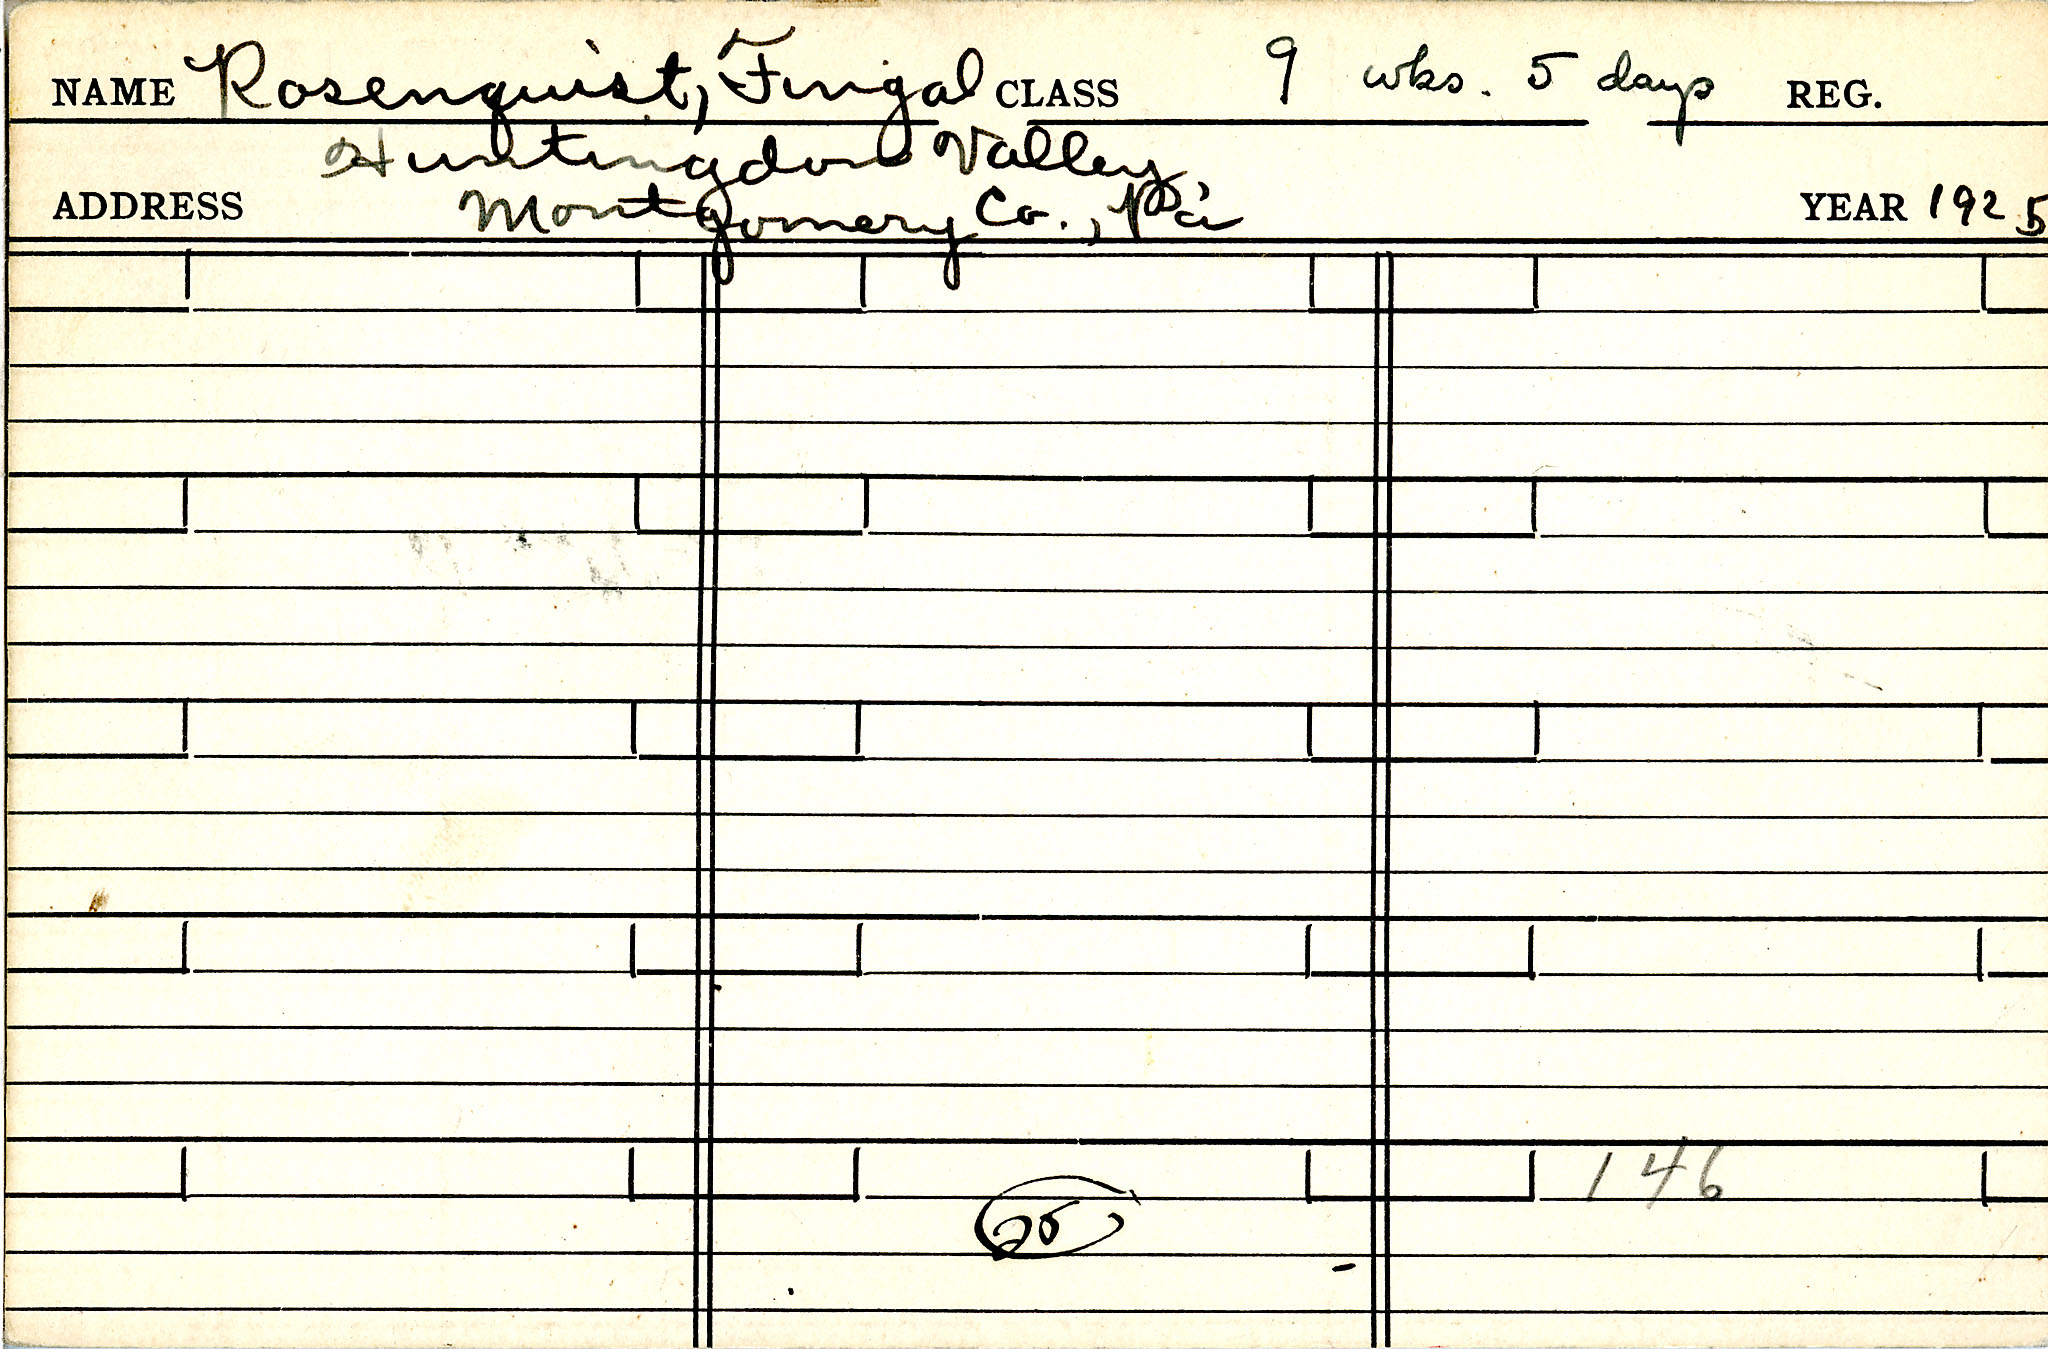 NAME Rosenquist, Fingal CLASS 9 wks. 5 days REG.
Huntingdon Valley
ADDRESS Montgomery Co., Pa YEAR 1925
146
25